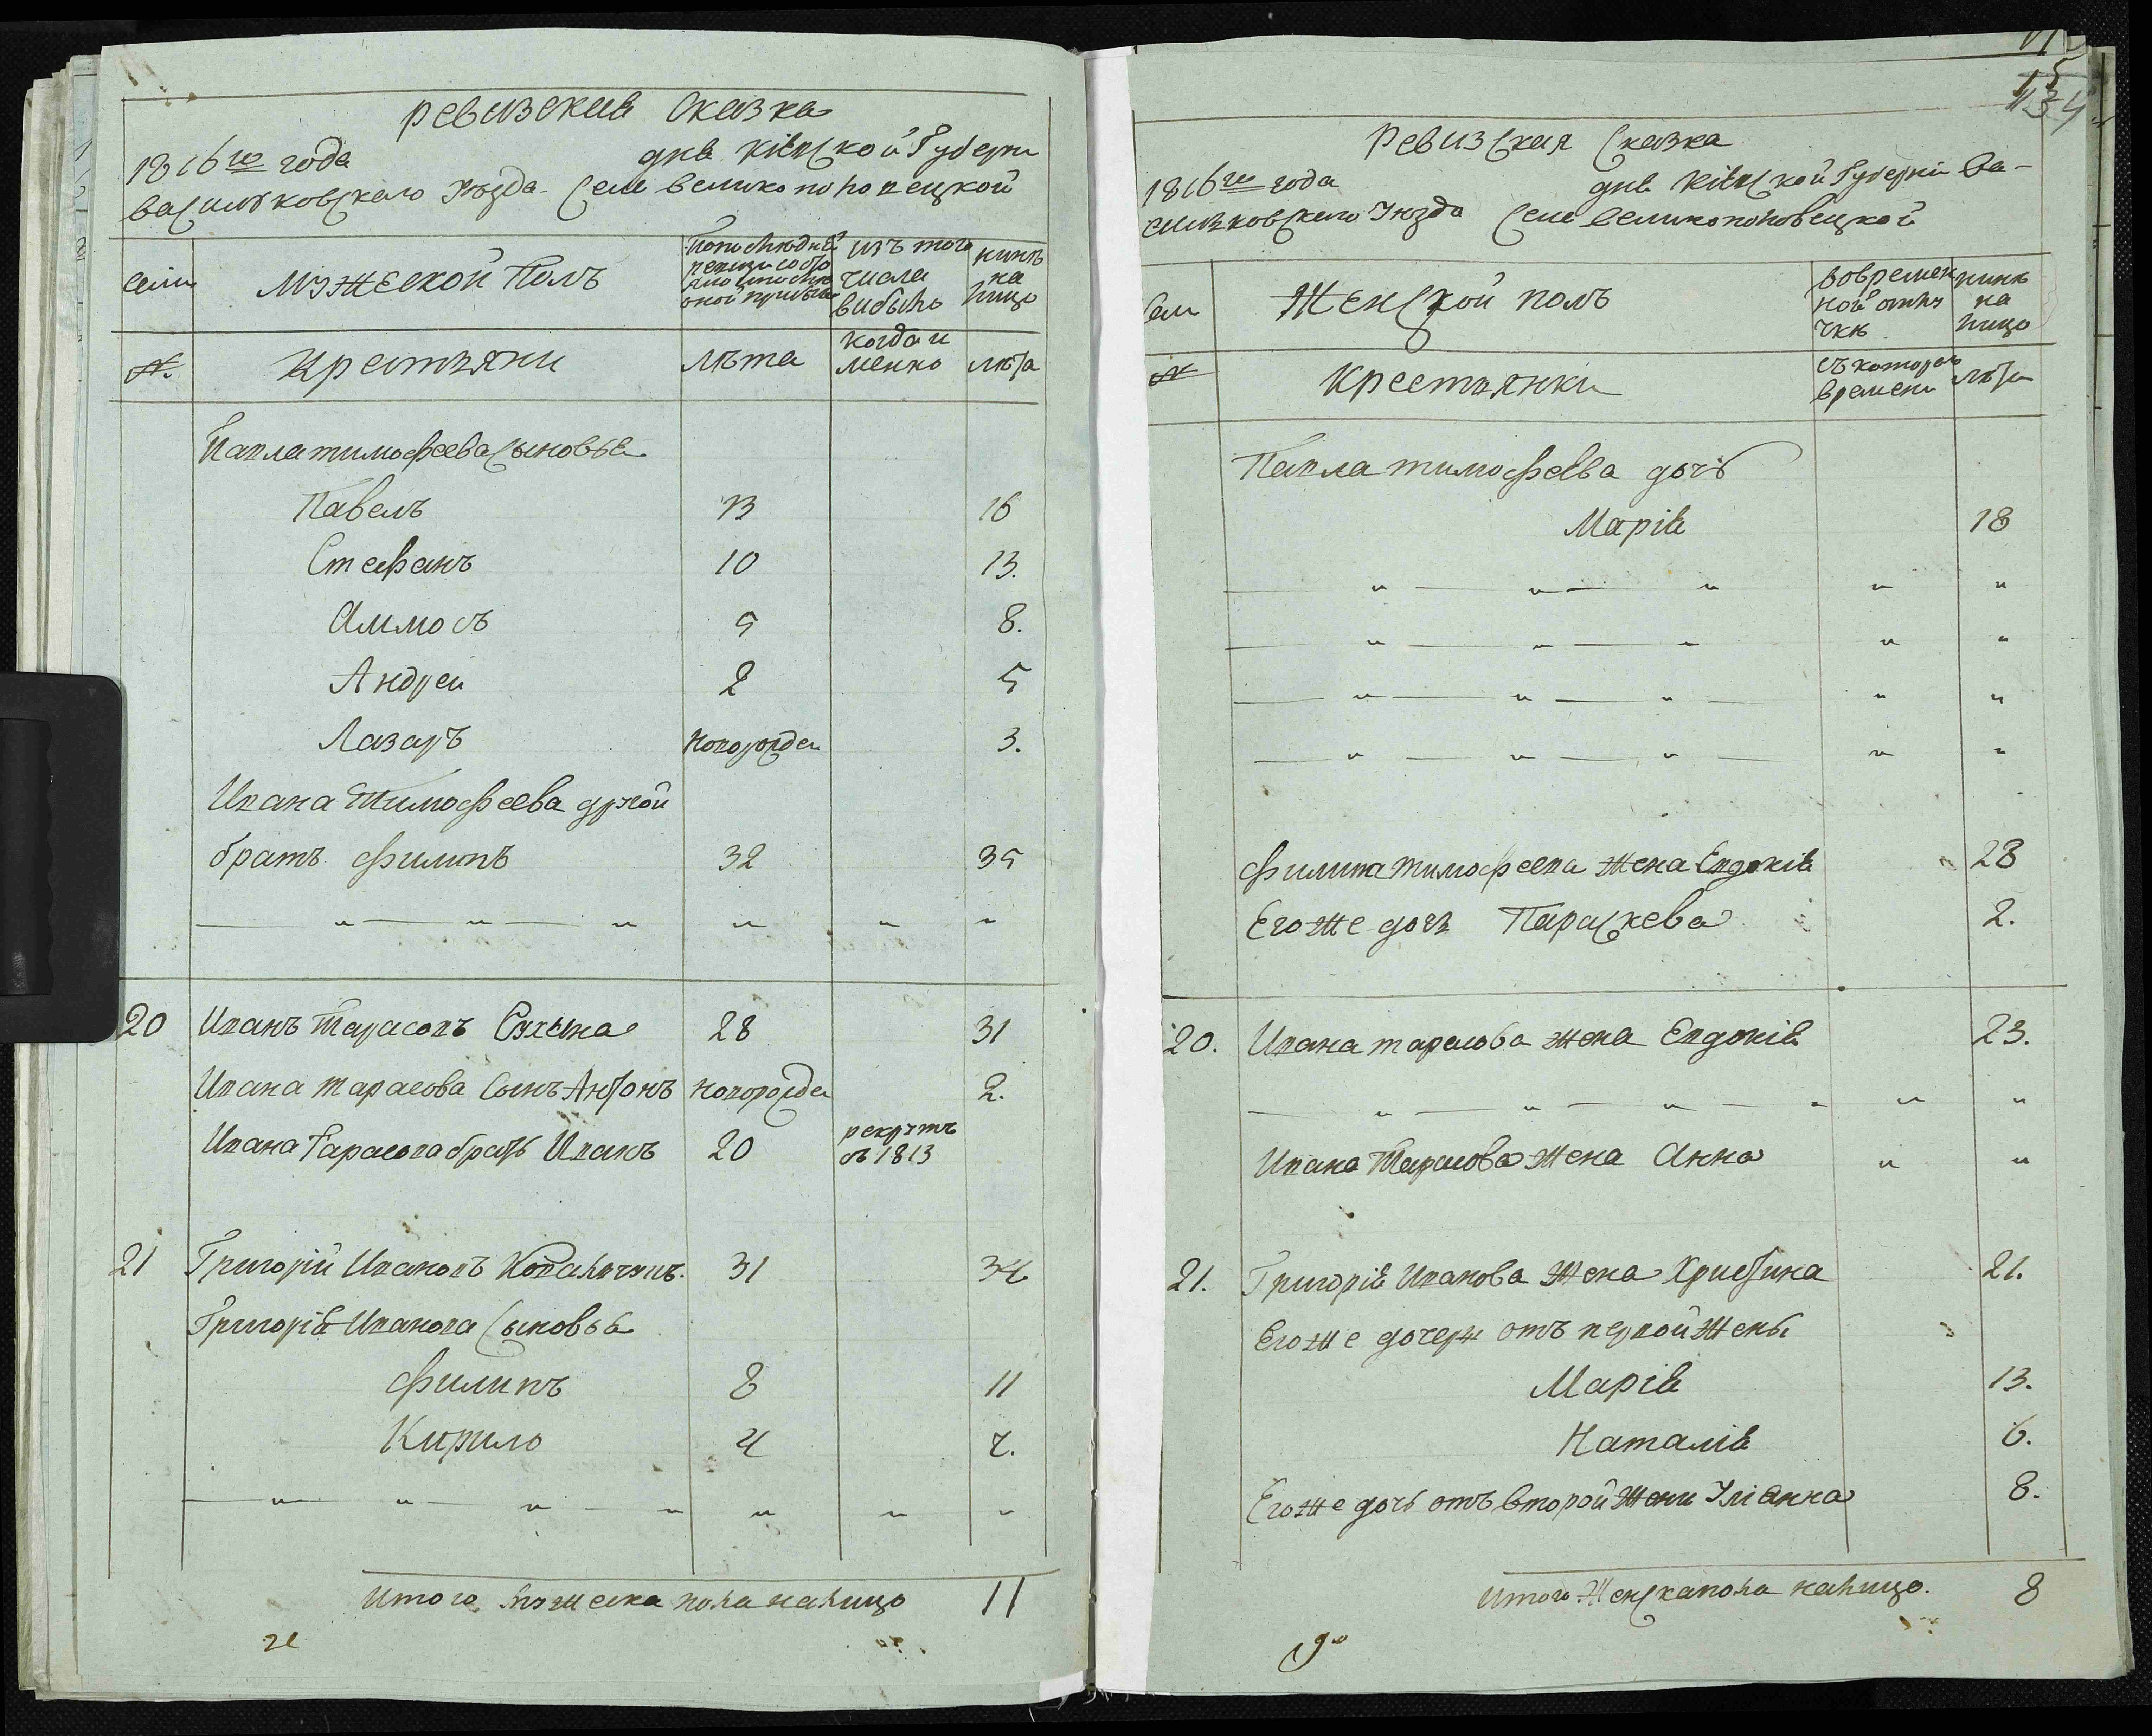 Ревизская Сказка
1816го года дня Кіевской Губерни
Васильковскаго Уезда Села Великополовецкой
семи Мужеской Полъ По последней ревизи состояло и после оной прибыло изъ того числа выбыло ныне на лицо
№ Крестьяни лета когда именно лета
Павла тимофеева Сыновья
Павелъ 13 16
Стефанъ 10 13.
Аммосъ 5 8.
Андрей 2 5
Лазаръ новорожден 3.
Ивана Тимофеева другой
братъ Филипъ 32 35
— „ — „ — „ „ „ „
20 Иванъ Тарасовъ 28 31
Ивана тарасова Сынъ Антонъ новорожден 2.
Ивана Тарасова братъ Иванъ 20 рекрутъ въ 1813
21 Григорій Ивановъ 31 34
Григорія Иванова Сыновья
Филипъ 8 11
Кирило 4 7.
— „ — „ — „ — „ „ „ „
Итого мужеска пола налицо 11
15
134
Ревизская Сказка
1816го года дня Кіевской Губерніи Ва-
силковскаго Уезда Села Великополовецкой
Сем Женской полъ Вовременной отлучке ныне на лицо
№ Крестьянки съ котораго времени лета
Павла тимофеева дочь
Марія 18
— „ — „ — „ „ „
— „ — „ — „ „ „
— „ — „ — „ — „ „
— „ — „ — „ — „ „
Филипа тимофеева жена Евдокія 28
Его же дочь Параскева 2.
20. Ивана тарасова жена Евдокія 23.
— „ — „ — „ — „ „ „
Ивана Тарасова жена Анна „ „
21. Григорія Иванова Жена Христина 21.
Его же дочери отъ первой жены
Марія 13.
Наталія 6.
Его же дочь отъ второй жени Уліанна 8.
Итого Женска пола налицо. 8